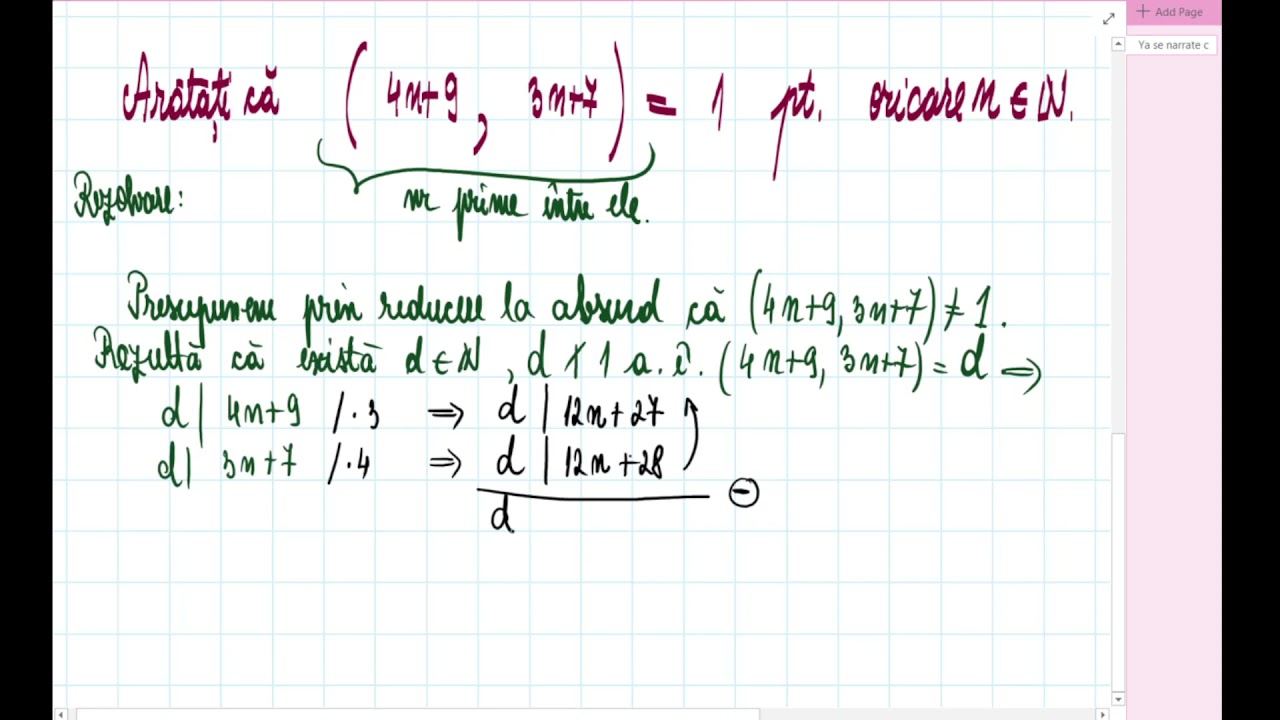 Add Page
Ya se narrate c
Arătați că (4n+9, 3n+7) = 1 pt. oricare n ∈ ℕ.
Rezolvare: nr prime între ele.
Presupunem prin reducere la absurd că (4n+9, 3n+7) ≠ 1.
Rezultă că există d ∈ ℕ, d ≠ 1 a. î. (4n+9, 3n+7) = d ⇒
d | 4n+9 /·3 ⇒ d | 12n+27
d | 3n+7 /·4 ⇒ d | 12n+28
d ⊖